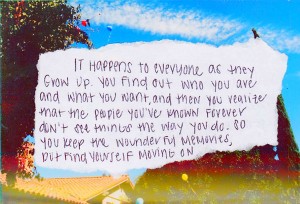 IT HAPPENS TO EVERYONE AS THEY
GROW UP. YOU FIND OUT WHO YOU ARE
AND WHAT YOU WANT, AND THEN YOU REALIZE
THAT THE PEOPLE YOU'VE KNOWN FOREVER
DON'T SEE THINGS THE WAY YOU DO. SO
YOU KEEP THE WOUNDERFUL MEMORIES,
BUT FIND YOURSELF MOVING ON